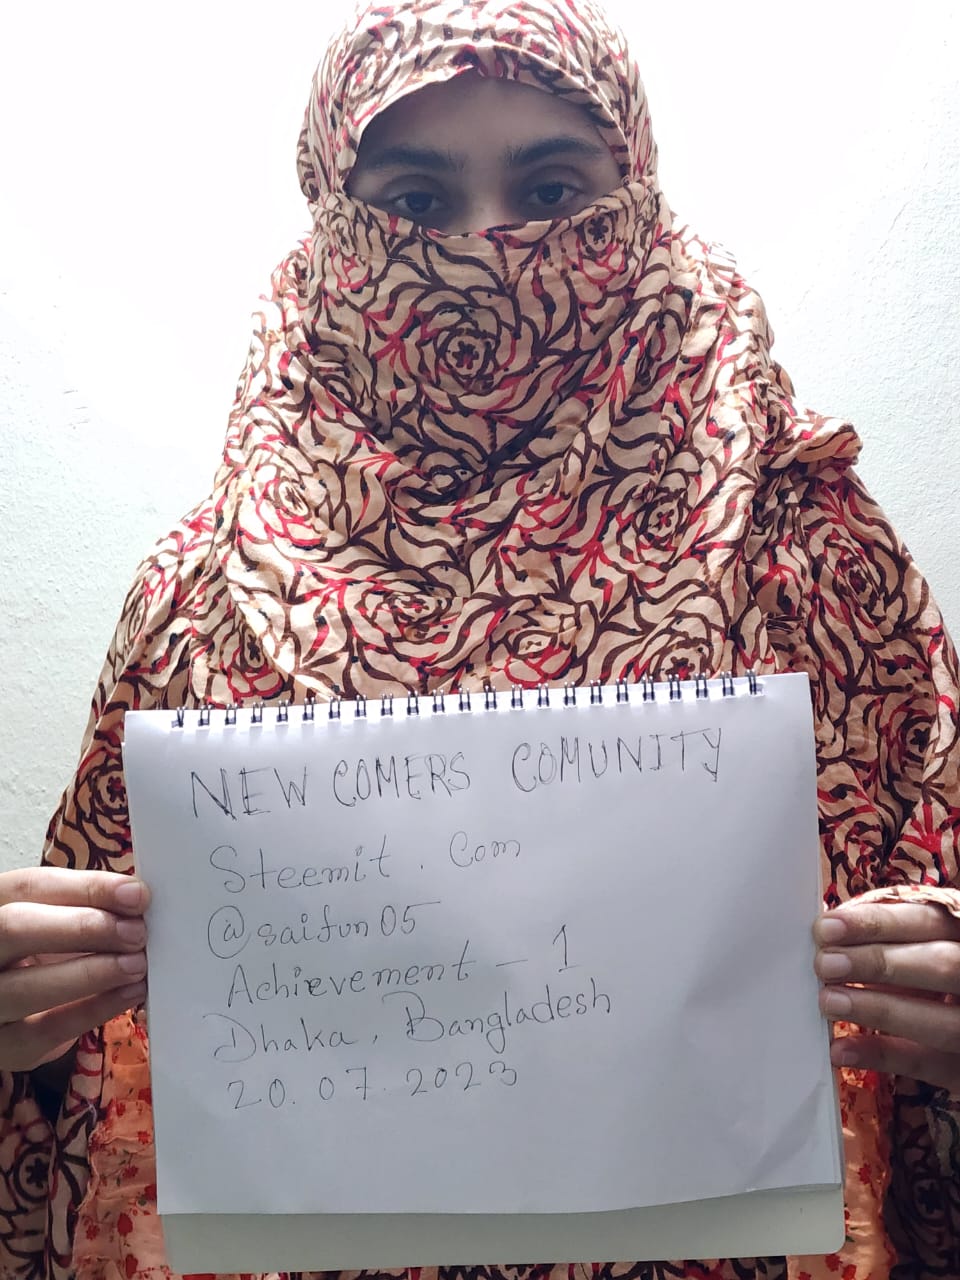 NEW COMERS COMUNITY
Steemit.Com
@saifun05
Achievement - 1
Dhaka, Bangladesh
20.07.2023